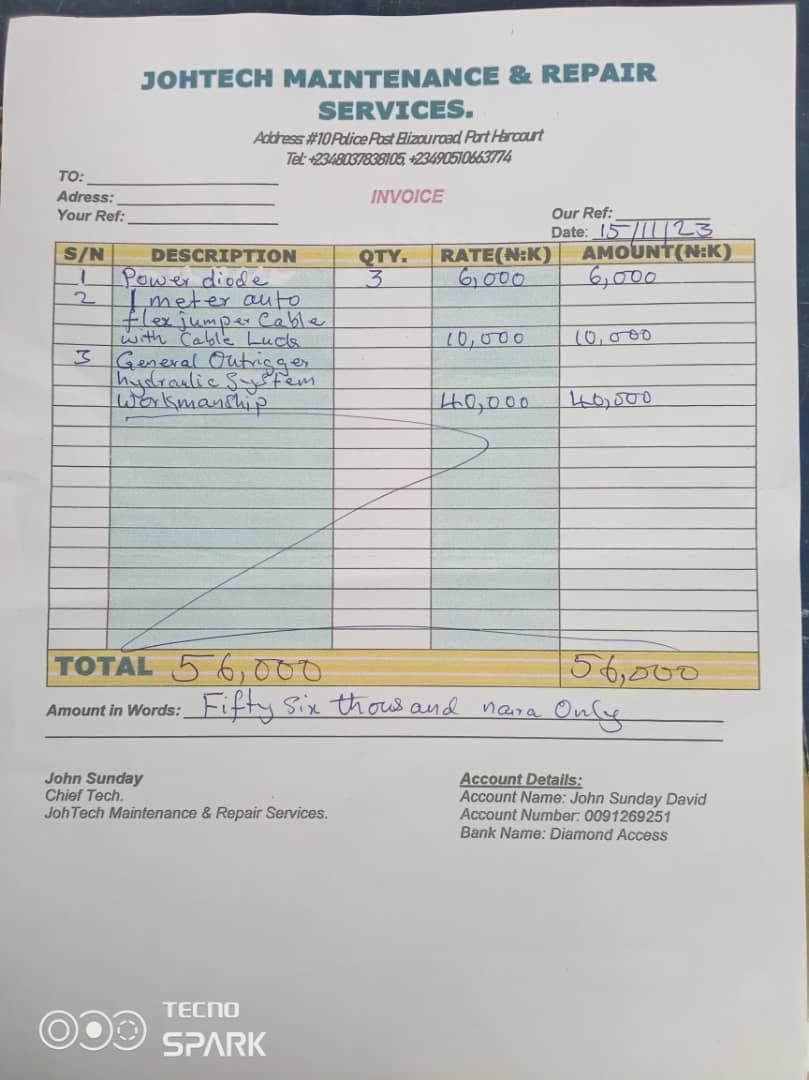 JOHTECH MAINTENANCE & REPAIR
SERVICES.
Address: #10 Police Post Elizouroad, Port Harcourt
Tel: +2348037838105, +2349051066​3774
TO:
Adress:
Your Ref:
INVOICE
Our Ref:
Date: 15/11/23
S/N DESCRIPTION QTY. RATE(N:K) AMOUNT(N:K)
1 Power diode 3 6,000 6,000
2 1 meter auto
flex jumper Cable
with Cable Lugs 10,000 10,000
3 General Outrigger
hydraulic System
Workmanship 40,000 40,000
TOTAL 56,000 56,000
Amount in Words: Fifty Six thousand naira Only
John Sunday
Chief Tech.
JohTech Maintenance & Repair Services.
Account Details:
Account Name: John Sunday David
Account Number: 0091269251
Bank Name: Diamond Access
TECNO
SPARK